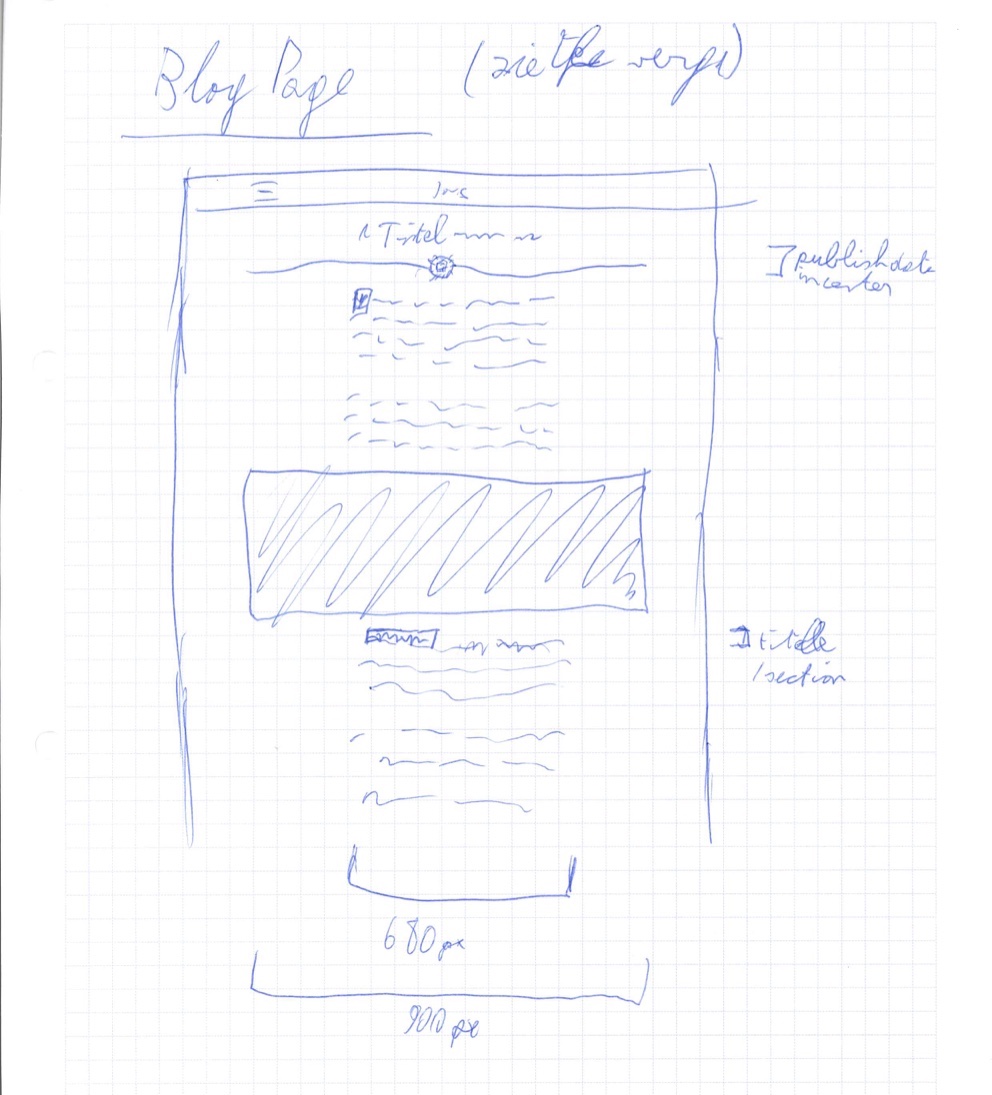 Blog Page
Titel
publishdate
in center
title
/section
680px
900 px